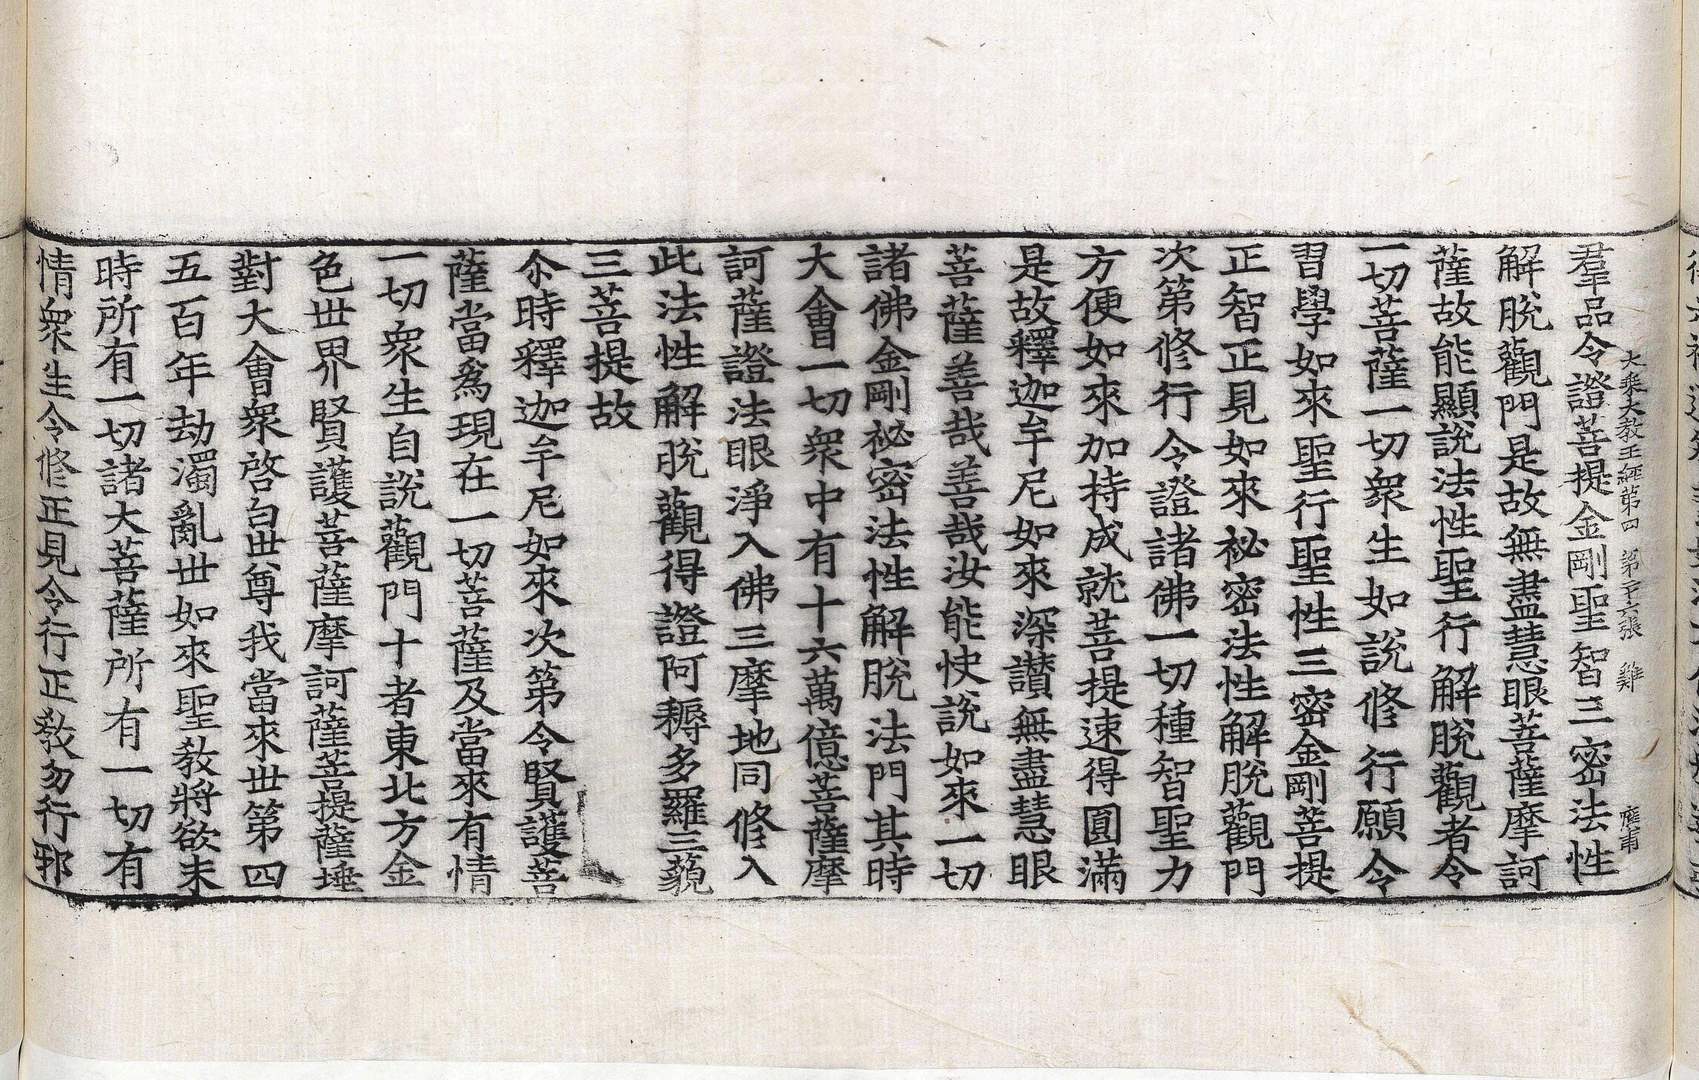 大乘大教王經第四 第六張 難 應甫
羣品令證菩提金剛聖智三密法性
解脫觀門是故無盡慧眼菩薩摩訶
薩故能顯說法性聖行解脫觀者令
一切菩薩一切衆生如說修行願令
習學如來聖行聖性三密金剛菩提
正智正見如來祕密法性解脫觀門
次第修行令證諸佛一切種智聖力
方便如來加持成就菩提速得圓滿
是故釋迦牟尼如來深讃無盡慧眼
菩薩善哉善哉汝能快說如來一切
諸佛金剛祕密法性解脫法門其時
大會一切衆中有十六萬億菩薩摩
訶薩證法眼淨入佛三摩地同修入
此法性解脫觀得證阿耨多羅三藐
三菩提故
尒時釋迦牟尼如來次第令賢護菩
薩當爲現在一切菩薩及當來有情
一切衆生自說觀門十者東北方金
色世界賢護菩薩摩訶薩菩提薩埵
對大會衆啓白世尊我當來世第四
五百年劫濁亂世如來聖教將欲末
時所有一切諸大菩薩所有一切有
情衆生令修正見令行正教勿行邪